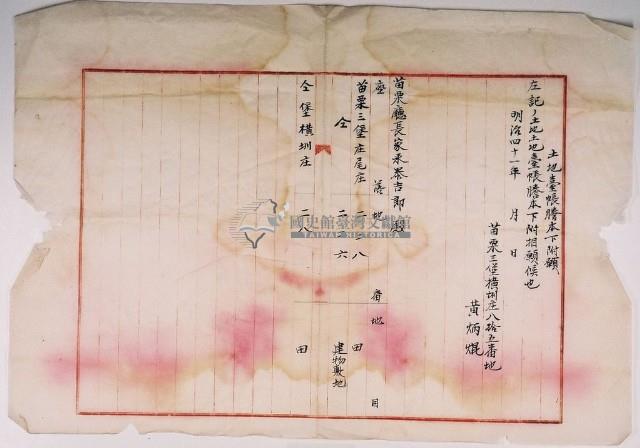 土地臺帳謄本下附願
左記ノ土地土地臺帳謄本下附相願候也
明治四十一年　月　日
苗栗三堡横圳庄八拾五番地
黃炳焜
苗栗廳長家永泰吉郎殿
座　落　地　番　地　目
苗栗三堡庄尾庄　二三八　田
仝　二六　建物敷地
仝堡横圳庄　二八　田
國史館臺灣文獻館
TAIWAN HISTORICA